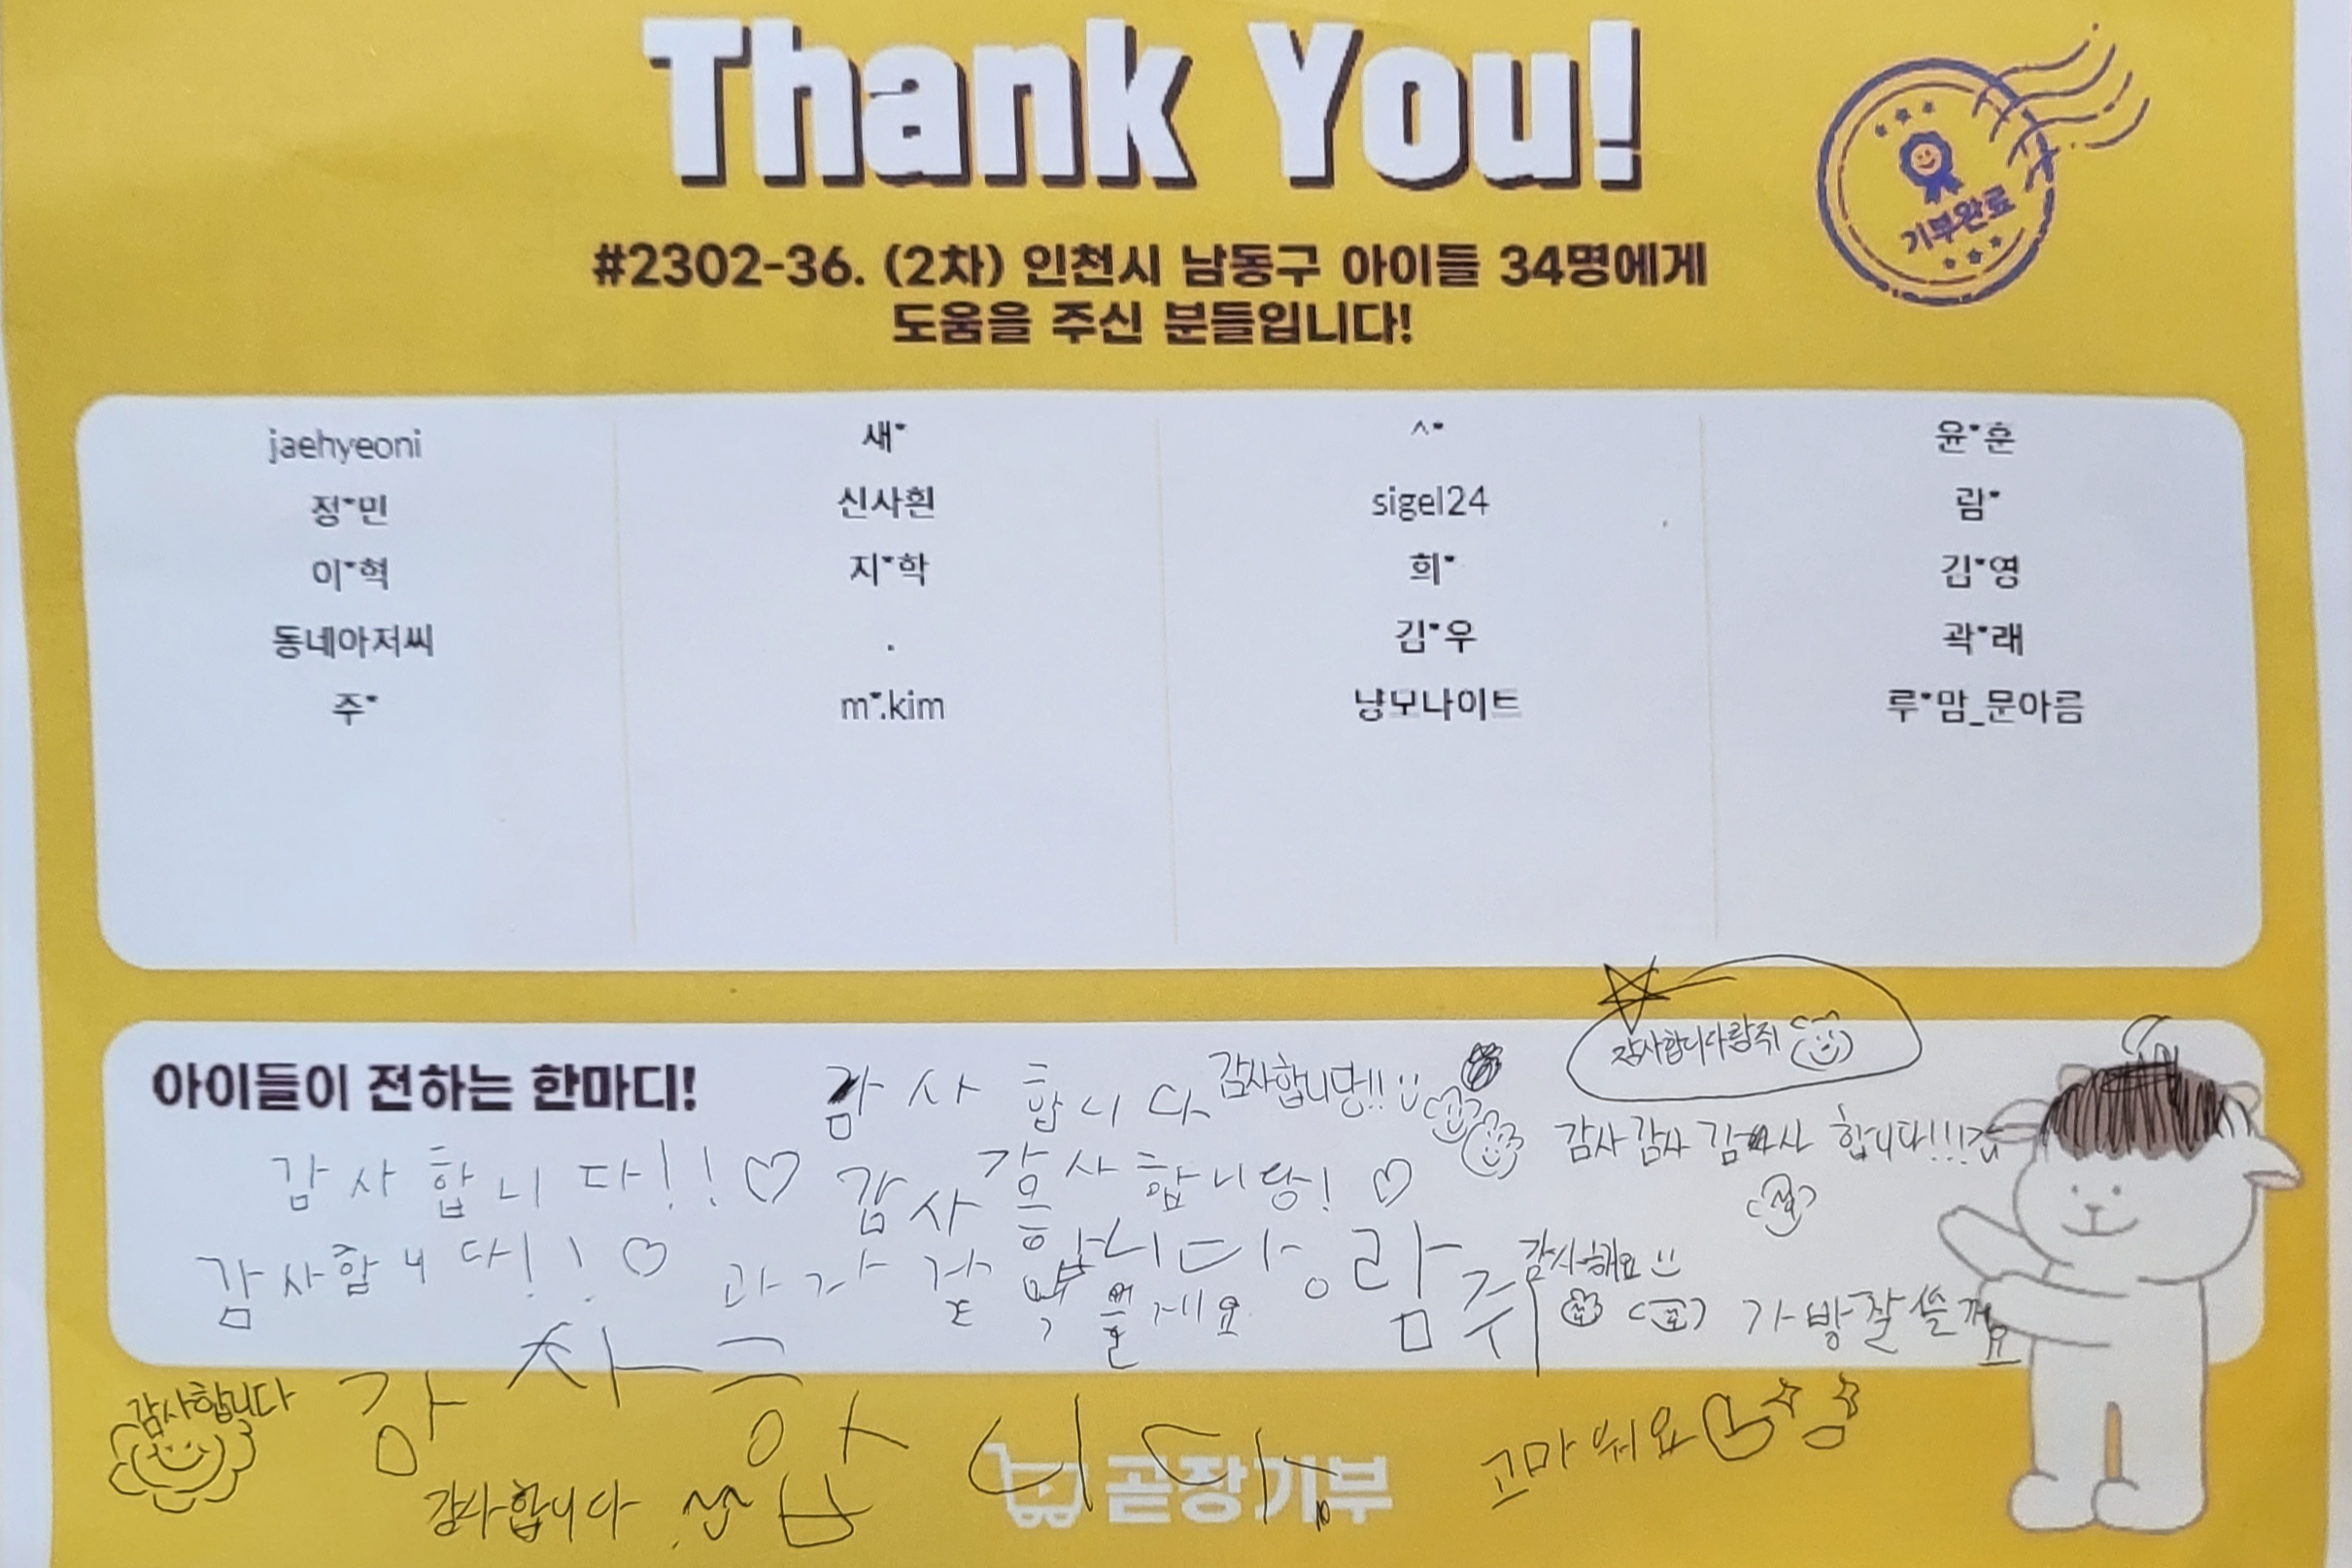 Thank You!
기부완료
#2302-36. (2차) 인천시 남동구 아이들 34명에게
도움을 주신 분들입니다!
jaehyeoni 새* ^* 윤*훈
정*민 신사흰 sigel24 람*
이*혁 지*학 희* 김*영
동네아저씨 . 김*우 곽*래
주* m*.kim 냥모나이트 루*맘_문아름
아이들이 전하는 한마디!
감사합니다
감사합니당!!
감사합니다람쥐
감사합니다!!♡
감사합니당!♡
감사감사 감사 합니다!!!
감사합니다!!♡
감사합니당
람쥐
과자 잘 먹을게요
감사해요
가방 잘 쓸게요
감사합니다
감사합니다
감사합니다
고마워요
곧장기부